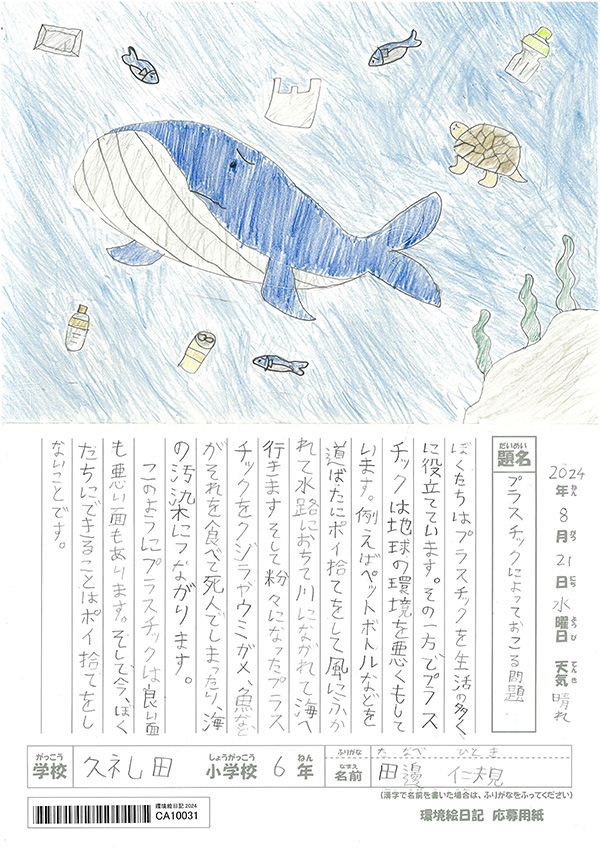 2024年8月21日水曜日 天気 晴れ
ねん がつ にち ようび てんき
だいめい
題名 プラスチックによっておこる問題
ぼくたちはプラスチックを生活の多く、
に役立てています。その一方でプラス
チックは地球の環境を悪くもして
います。例えばペットボトルなどを
道ばたにポイ捨てをして風にふか
れて水路におちて川にながれて海へ
行きますそして粉々になったプラス
チックをクジラやウミガメ、魚など
がそれを食べて死んでしまったり、海
の汚染につながります。
このようにプラスチックは良い面
も悪い面もあります。そして、今、ぼく
たちにできることはポイ捨てをし
ないことです。
がっこう しょうがっこう ねん
学校 久礼田 小学校 6年
ふりがな た なべ ひとき
なまえ
名前 田邊 仁規
(漢字で名前を書いた場合は、ふりがなをふってください)
環境絵日記2024
CA10031
環境絵日記 応募用紙